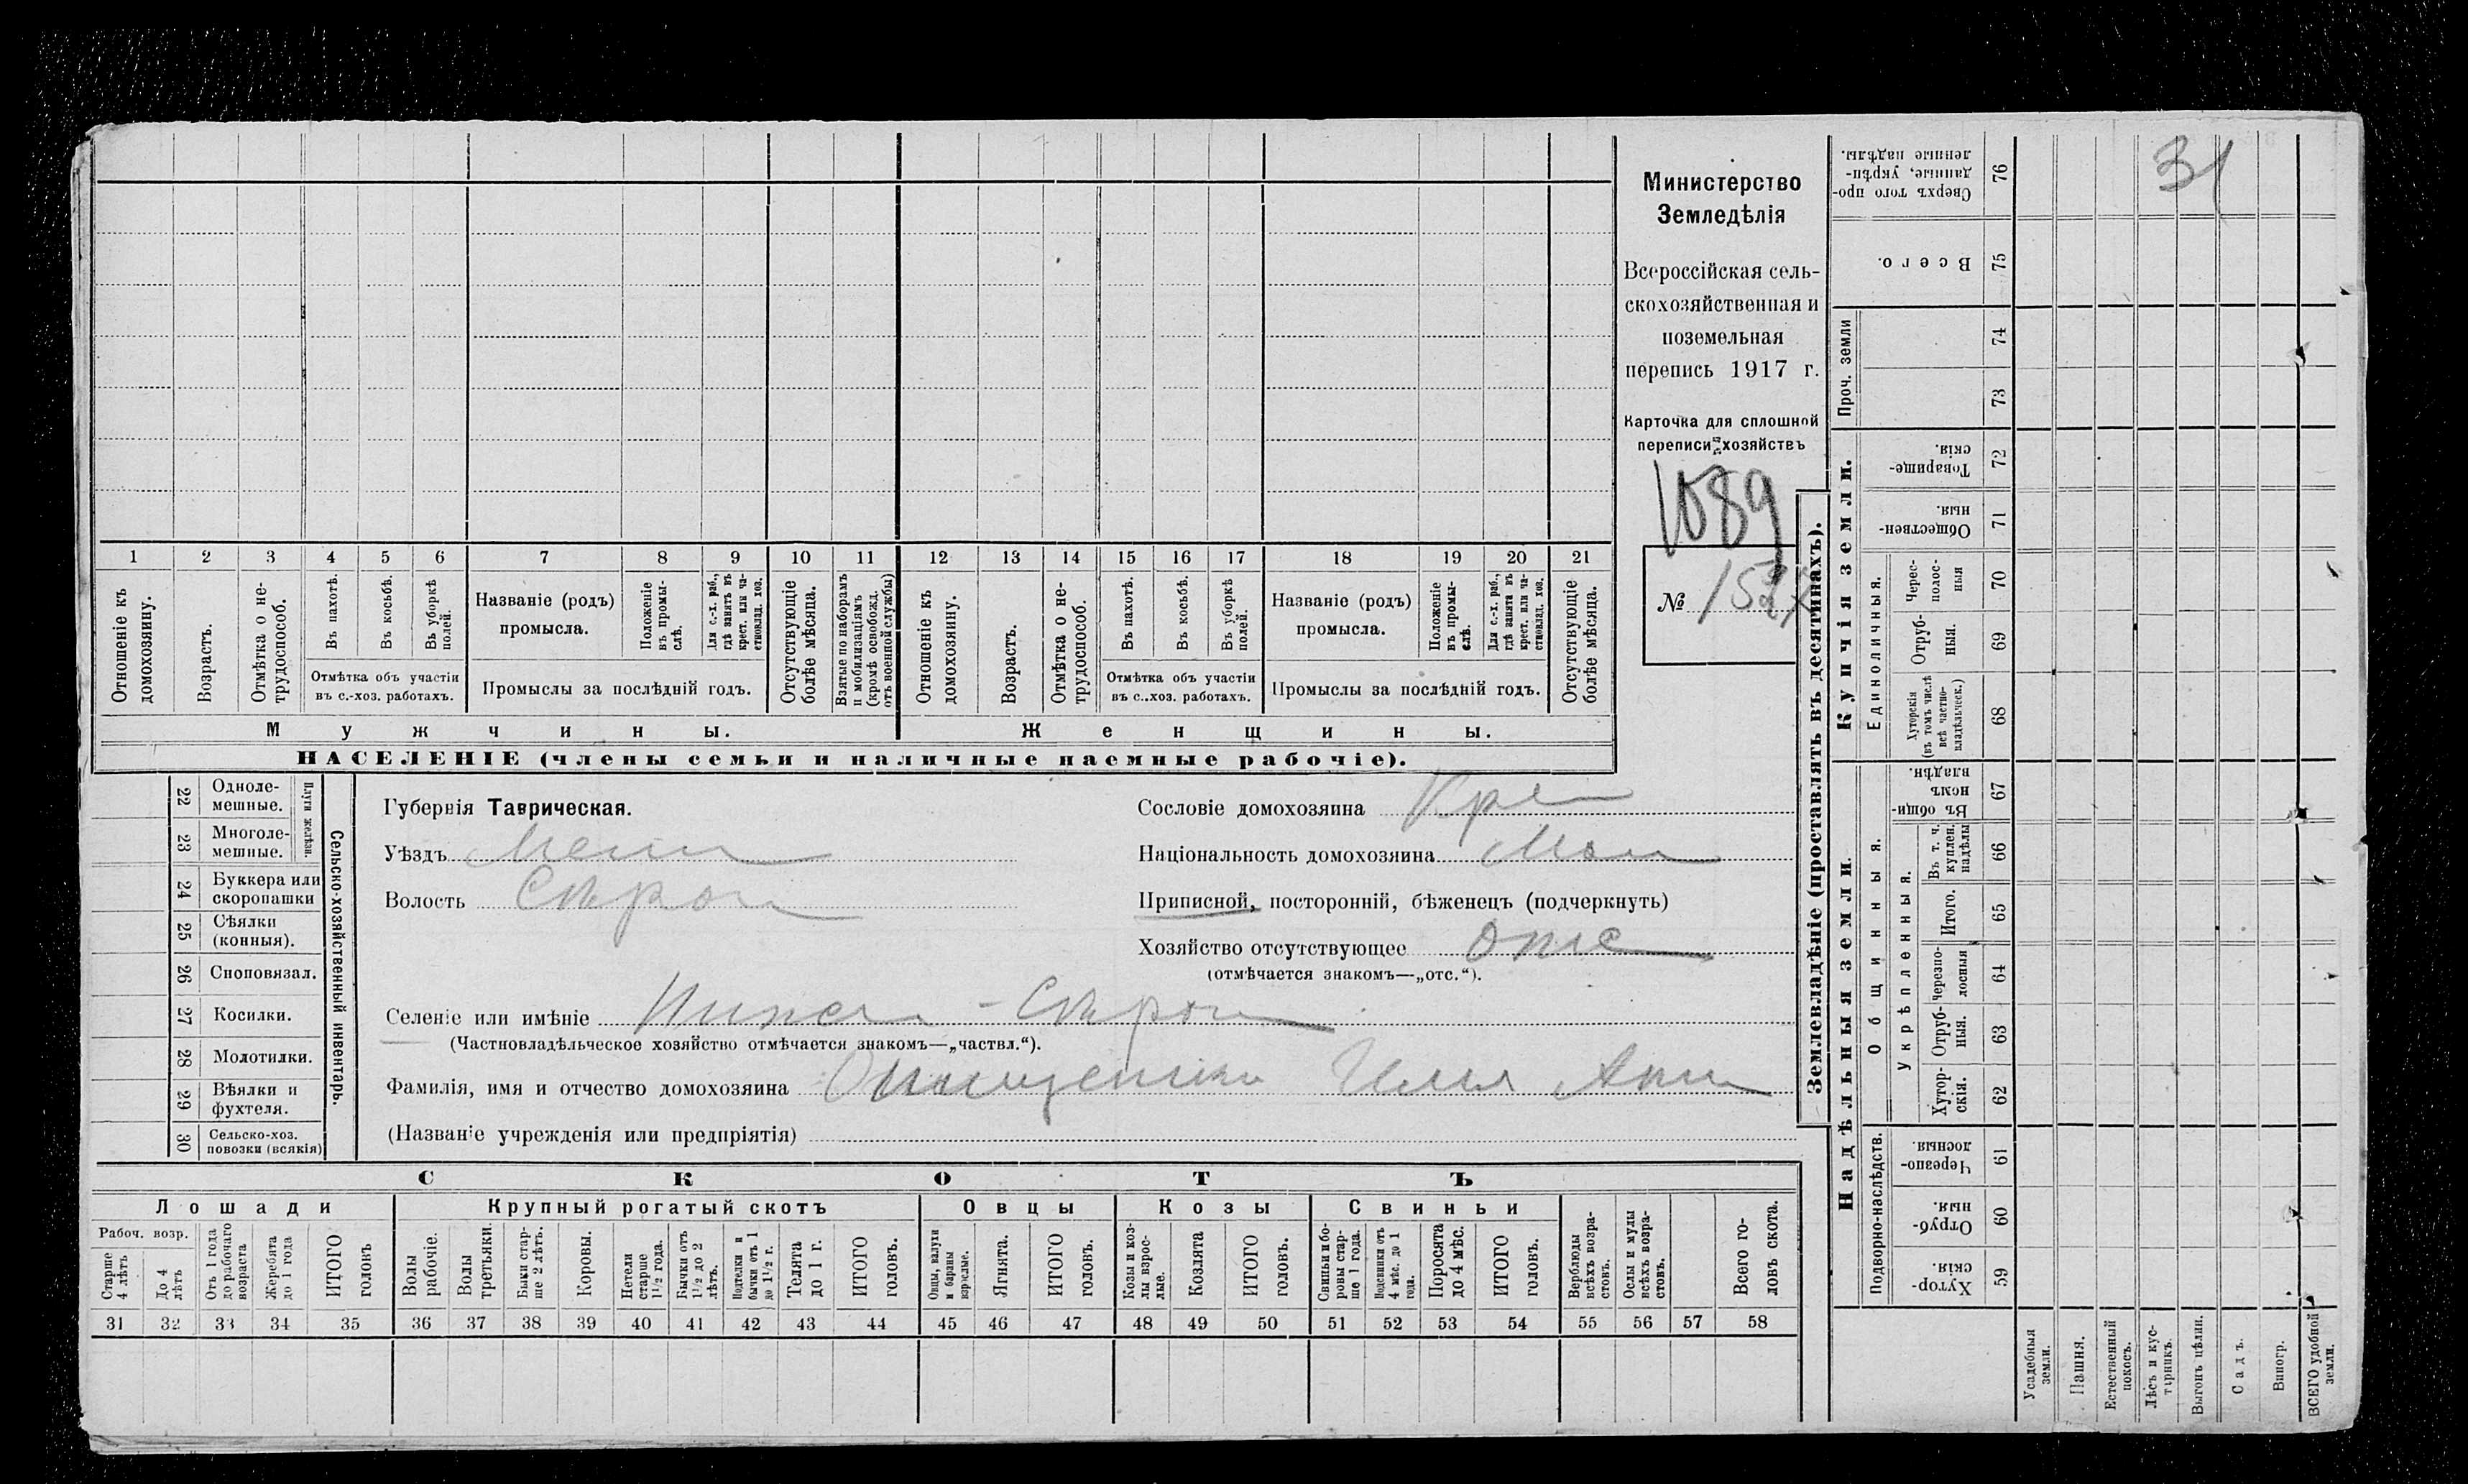 31
Министерство
Земледѣлія
Всероссійская сель-
скохозяйственная и
поземельная
перепись 1917 г.
Карточка для сплошной
переписи хозяйствъ
1089
№ 1527
1 2 3 4 5 6 7 8 9 10 11 12 13 14 15 16 17 18 19 20 21
Отношеніе къ домохозяину.
Возрастъ.
Отмѣтка о не-трудоспособ.
Въ пахотѣ.
Въ косьбѣ.
Въ уборкѣ полей.
Отмѣтка объ участіи
въ с.-хоз. работахъ.
Названіе (родъ)
промысла.
Положеніе въ промы-слѣ.
Для с.-х. раб., гдѣ занятъ въ крест. или ча-стновлад. хоз.
Промыслы за послѣдній годъ.
Отсутствующіе болѣе мѣсяца.
Взятые по наборамъ и мобилизаціямъ (кромѣ освобожд. отъ военной службы)
Отношеніе къ домохозяину.
Возрастъ.
Отмѣтка о не-трудоспособ.
Въ пахотѣ.
Въ косьбѣ.
Въ уборкѣ полей.
Отмѣтка объ участіи
въ с..хоз. работахъ.
Названіе (родъ)
промысла.
Положеніе въ промы-слѣ.
Для с.-х. раб., гдѣ занята въ крест. или ча-стновлад. хоз.
Промыслы за послѣдній годъ.
Отсутствующіе болѣе мѣсяца.
Мужчины.
Женщины.
НАСЕЛЕНІЕ (члены семьи и наличные наемные рабочіе).
22 Одноле-мешные.
23 Многоле-мешные.
Плуги желѣзн.
24 Буккера или скоропашки
25 Сѣялки (конныя).
26 Сноповязал.
27 Косилки.
28 Молотилки.
29 Вѣялки и фухтеля.
30 Сельско-хоз. повозки (всякія)
Сельско-хозяйственный инвентарь.
Губернія Таврическая.
Уѣздъ
Волость
Сословіе домохозяина Кре
Національность домохозяина
Приписной, посторонній, бѣженецъ (подчеркнуть)
Хозяйство отсутствующее отс
(отмѣчается знакомъ—„отс.“).
Селеніе или имѣніе
(Частновладѣльческое хозяйство отмѣчается знакомъ—„частвл.“).
Фамилія, имя и отчество домохозяина Илья
(Названіе учрежденія или предпріятія)
СКОТЪ
Лошади
Крупный рогатый скотъ
Овцы
Козы
Свиньи
Рабоч. возр.
Старше 4 лѣтъ
До 4 лѣтъ
Отъ 1 года до рабочаго возраста
Жеребята до 1 года
ИТОГО головъ
Волы рабочіе.
Волы третьяки.
Быки стар-ше 2 лѣтъ.
Коровы.
Нетели старше 1½ года.
Бычки отъ 1½ до 2 лѣтъ.
Подтелки и бычки отъ 1 до 1½ г.
Телята до 1 г.
ИТОГО головъ.
Овцы, валухи и бараны взрослые.
Ягнята.
ИТОГО головъ.
Козы и коз-лы взрос-лые.
Козлята
ИТОГО головъ.
Свиньи и бо-ровы стар-ше 1 года.
Подсвинки отъ 4 мѣс. до 1 года.
Поросята до 4 мѣс.
ИТОГО головъ.
Верблюды всѣхъ возра-стовъ.
Ослы и мулы всѣхъ возра-стовъ.
Всего го-ловъ скота.
31 32 33 34 35 36 37 38 39 40 41 42 43 44 45 46 47 48 49 50 51 52 53 54 55 56 57 58
Землевладѣніе (проставлять въ десятинахъ).
Надѣльныя земли.
Купчія земли.
Проч. земли
Подворно-наслѣдств.
Общинныя.
Укрѣпленныя.
Единоличныя.
Хутор-скія. 59
Отруб-ныя. 60
Черезпо-лосныя 61
Хутор-скія. 62
Отруб-ныя. 63
Черезпо-лосныя 64
Итого. 65
Въ т. ч. куплен. надѣлы 66
Въ общи-номъ владѣн. 67
Хуторскія (въ томъ числѣ всѣ частно-владѣльческ.) 68
Отруб-ныя. 69
Черес-полос-ныя 70
Обществен-ныя. 71
Товарище-скія. 72
73
74
Всего. 75
Сверхъ того про-данные, укрѣп-ленные надѣлы. 76
Усадебныя земли.
Пашня.
Естественный покосъ.
Лѣсъ и кус-тарникъ.
Выгонъ цѣлин.
Садъ.
Виногр.
ВСЕГО удобной земли.